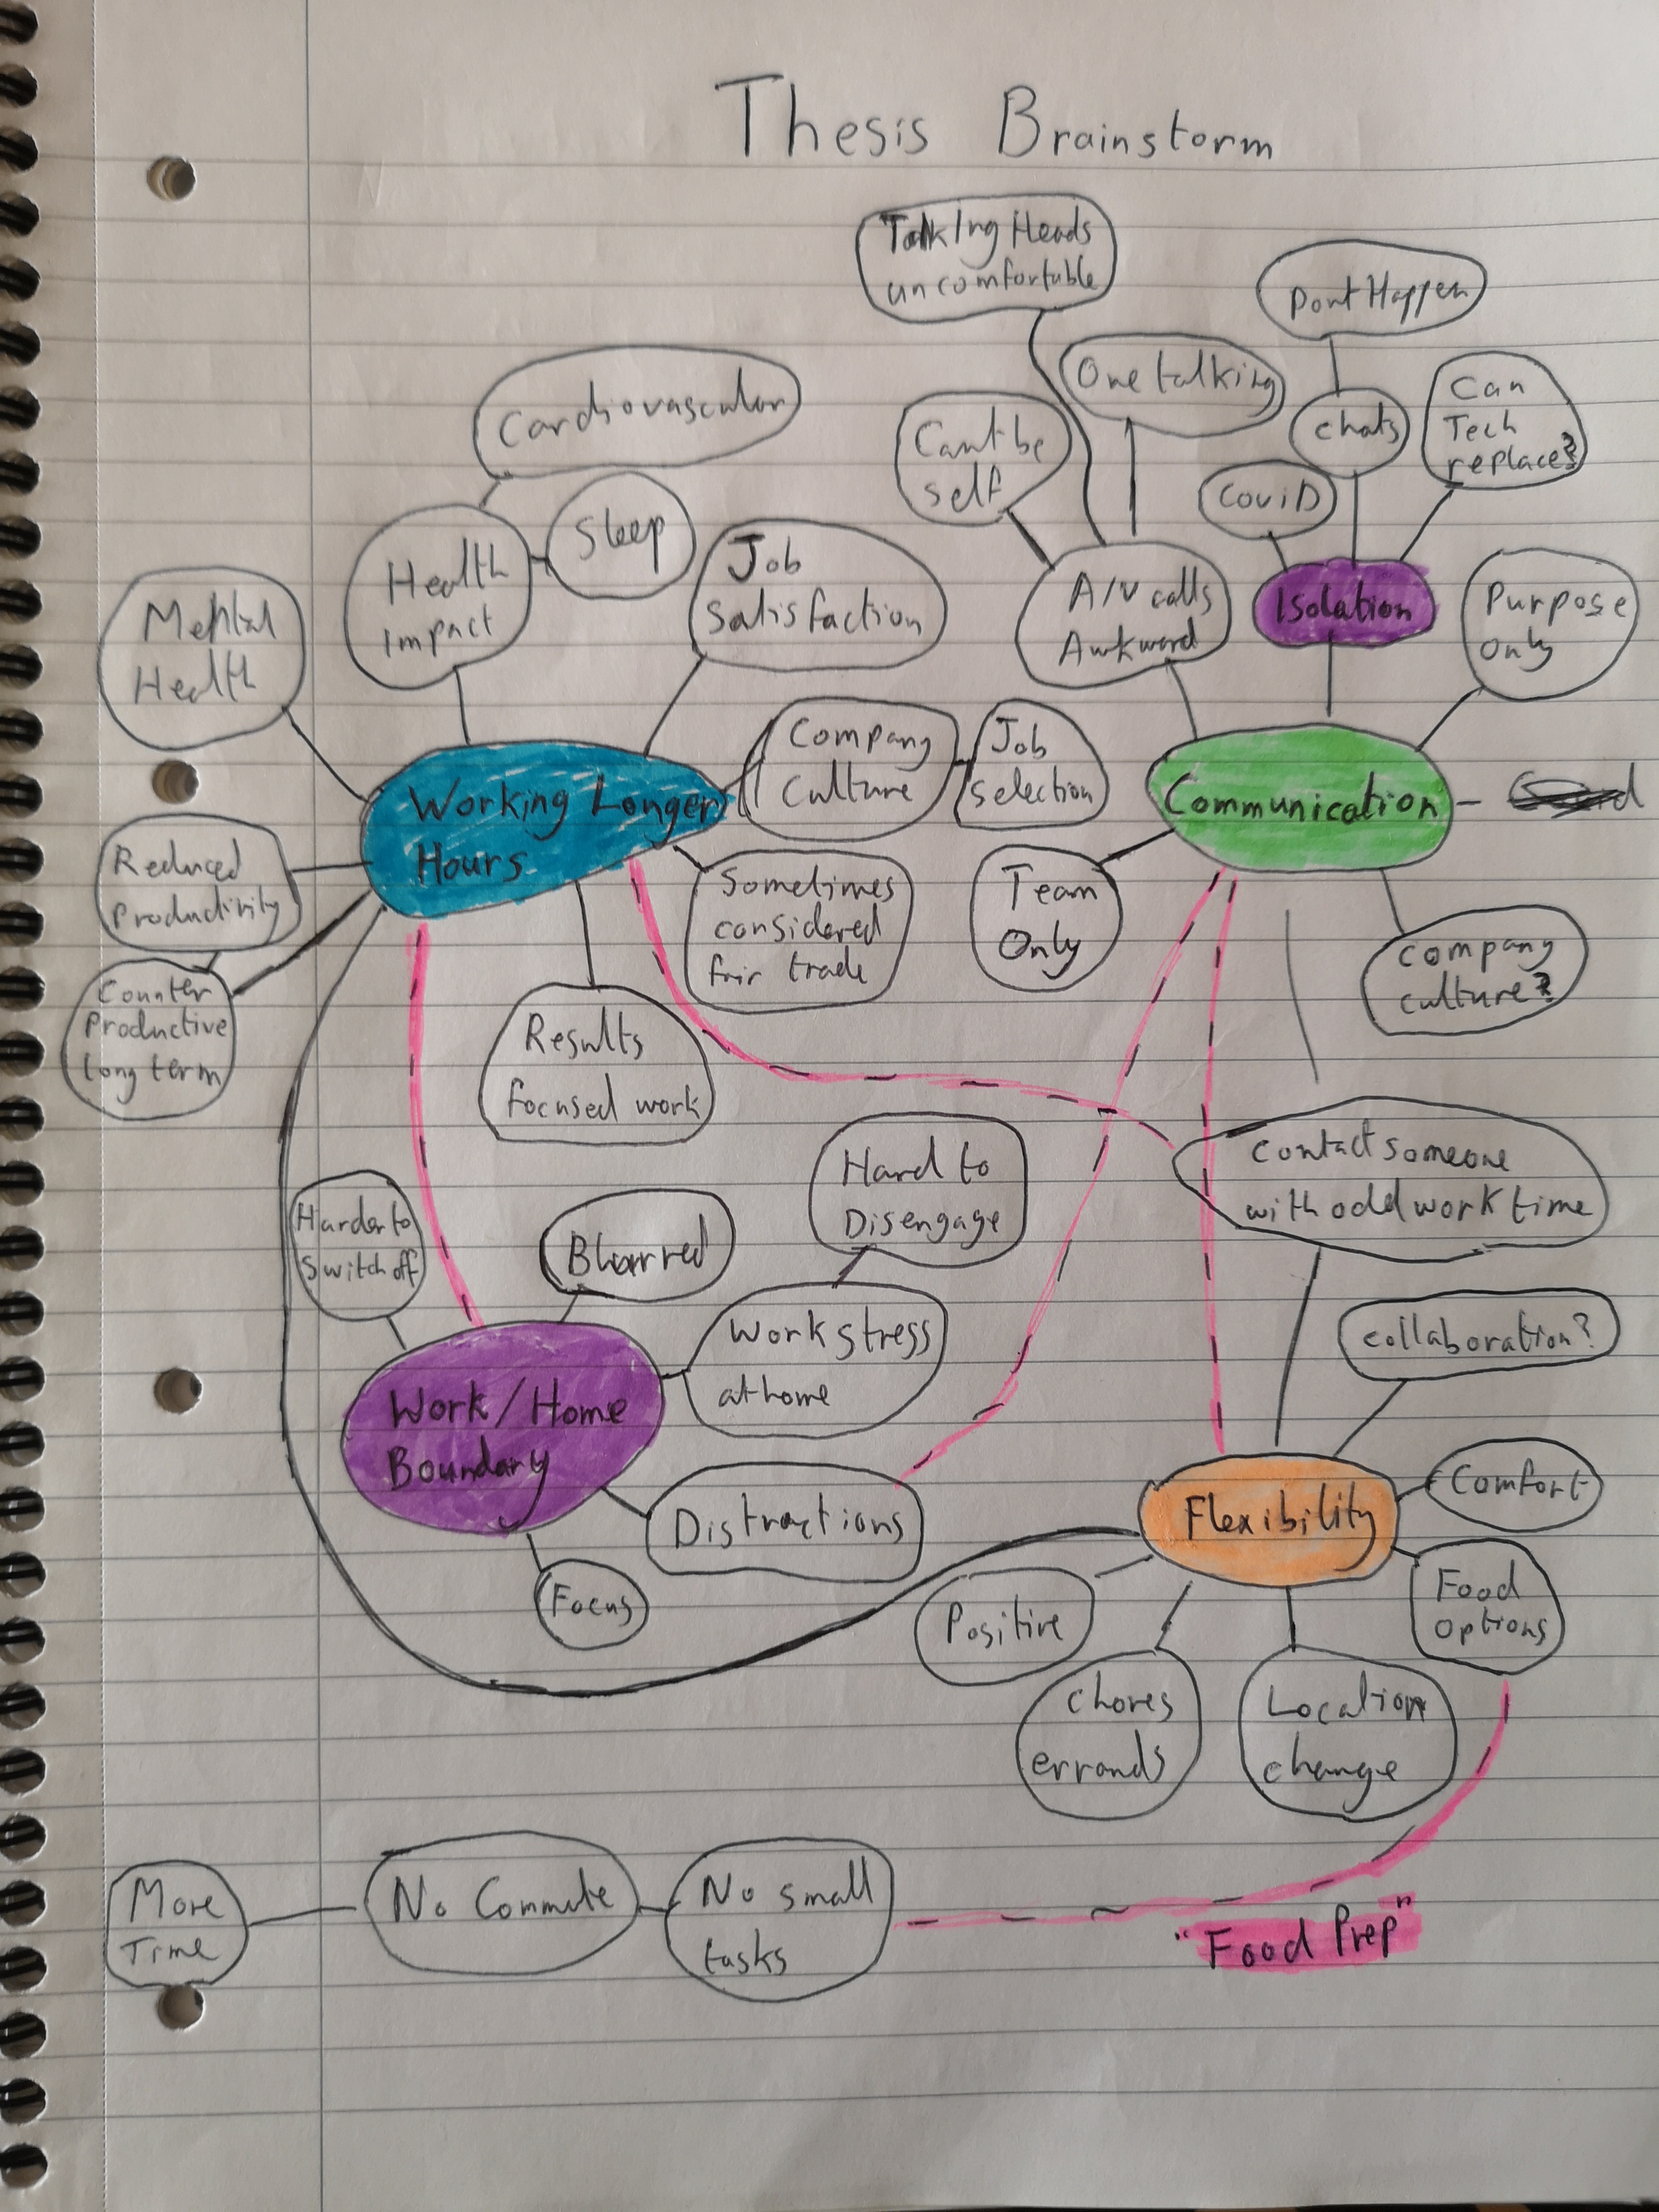 Thesis Brainstorm
Talking Heads
uncomfortable
Dont Happen
One talking
Can
Tech
replace?
chats
Cardiovascular
Cant be
self
Covid
Sleep
Health
Impact
Job
Satisfaction
A/V calls
Awkward
Isolation
Purpose
Only
Mental
Health
Company
Culture
Job
Selection
Working Longer
Hours
Communication
Reduced
Productivity
Sometimes
considered
fair trade
Team
Only
company
culture?
Counter
Productive
long term
Results
focused work
Hard to
Disengage
Contact someone
with odd work time
Harder to
Switch off
Blurred
Work stress
at home
collaboration?
Work/Home
Boundary
Comfort
Distractions
Flexibility
Focus
Positive
Food
options
Chores
errands
Location
change
More
Time
No Commute
No small
tasks
"Food Prep"